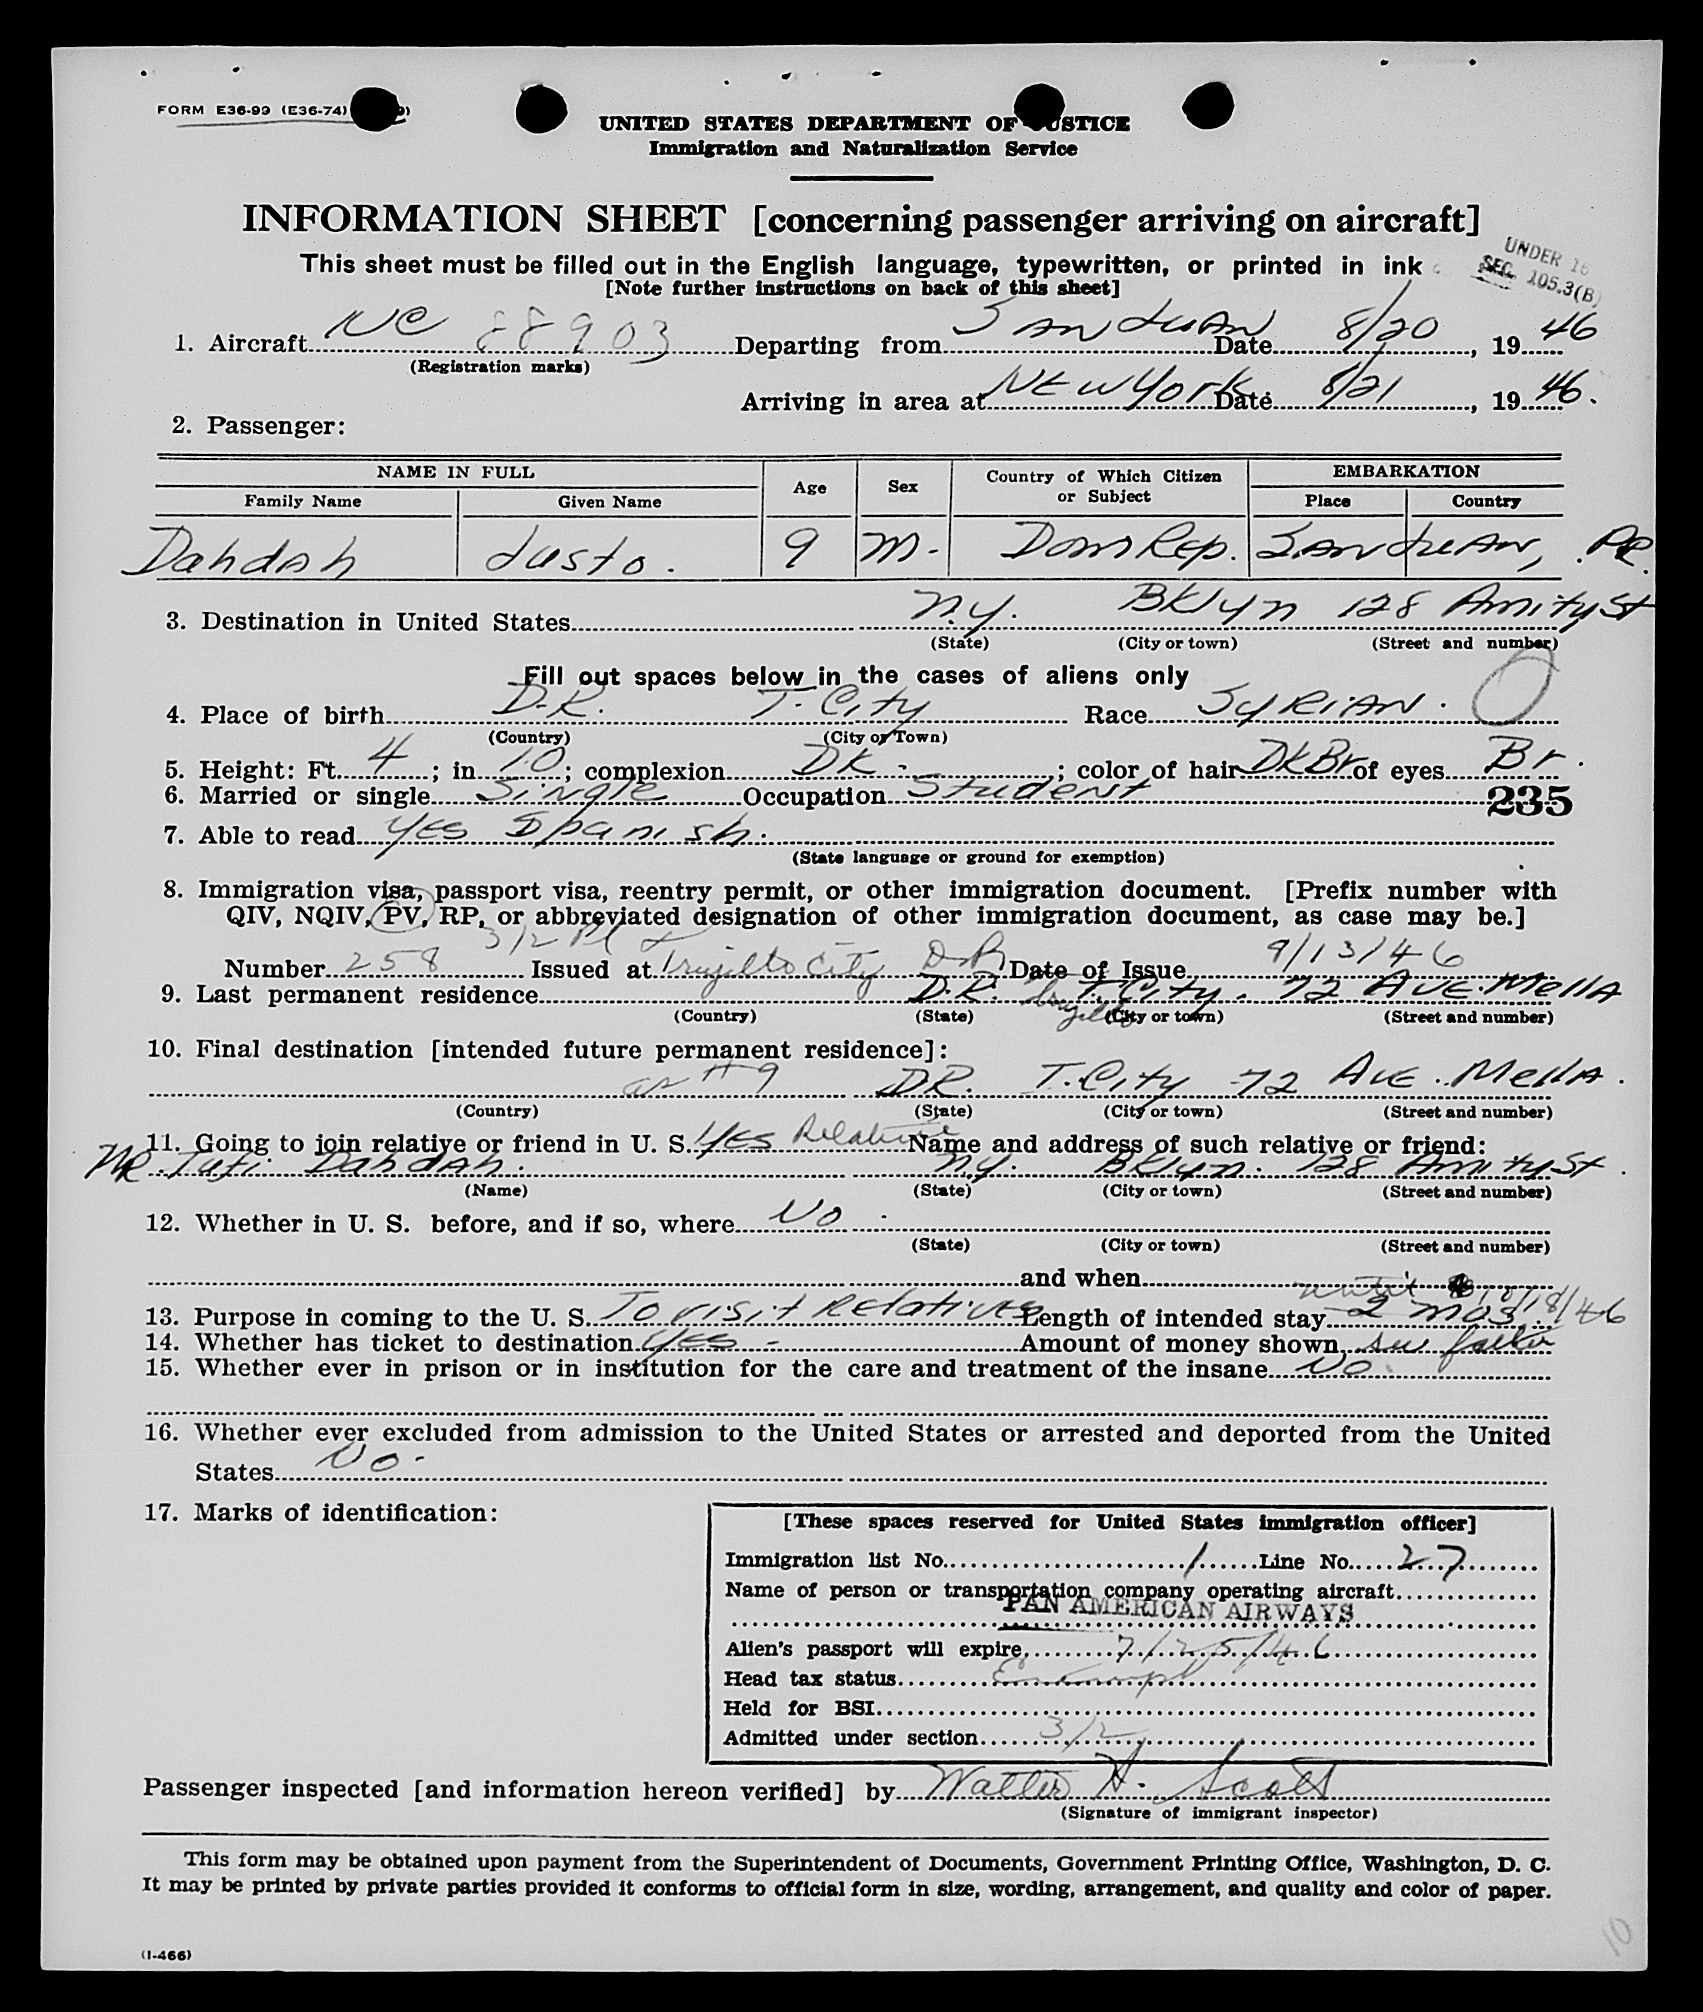 FORM E36-99 (E36-74)
UNITED STATES DEPARTMENT OF JUSTICE
Immigration and Naturalization Service
INFORMATION SHEET [concerning passenger arriving on aircraft]
This sheet must be filled out in the English language, typewritten, or printed in ink
[Note further instructions on back of this sheet]
UNDER 16
SEC. 105.3(B)
1. Aircraft NC 88903 Departing from San Juan Date 8/20, 1946
(Registration marks)
Arriving in area at New York Date 8/21, 1946.
2. Passenger:
NAME IN FULL Age Sex Country of Which Citizen or Subject EMBARKATION
Family Name Given Name Place Country
Dahdah Justo. 9 M. Dom Rep. San Juan, PR.
3. Destination in United States N.Y. Bklyn 128 Amity St
(State) (City or town) (Street and number)
Fill out spaces below in the cases of aliens only
4. Place of birth D.R. T. City Race Syrian.
(Country) (City or Town)
5. Height: Ft. 4; in. 10; complexion Dk.; color of hair DkBr of eyes Br.
6. Married or single Single Occupation Student
235
7. Able to read Yes Spanish.
(State language or ground for exemption)
8. Immigration visa, passport visa, reentry permit, or other immigration document. [Prefix number with
QIV, NQIV, PV, RP, or abbreviated designation of other immigration document, as case may be.]
3/2
Number 258 Issued at Trujillo City D.R Date of Issue
9. Last permanent residence D.R. Trujillo T. City. 72 Ave. Mella
(Country) (State) (City or town) (Street and number)
10. Final destination [intended future permanent residence]:
as #9 D.R. T. City 72 Ave. Mella.
(Country) (State) (City or town) (Street and number)
11. Going to join relative or friend in U. S. Yes Relative Name and address of such relative or friend:
Mr. Tufi Dahdah. N.Y. Bklyn. 128 Amity St.
(Name) (State) (City or town) (Street and number)
12. Whether in U. S. before, and if so, where No.
(State) (City or town) (Street and number)
and when
13. Purpose in coming to the U. S. To visit Relatives Length of intended stay 2 mos. until 10/18/46
14. Whether has ticket to destination Yes - Amount of money shown see father
15. Whether ever in prison or in institution for the care and treatment of the insane No.
16. Whether ever excluded from admission to the United States or arrested and deported from the United
States No.
17. Marks of identification:
[These spaces reserved for United States immigration officer]
Immigration list No. 1 Line No. 27
Name of person or transportation company operating aircraft
PAN AMERICAN AIRWAYS
Alien's passport will expire
Head tax status Exempt
Held for BSI
Admitted under section 3/2
Passenger inspected [and information hereon verified] by Walter H. Scott
(Signature of immigrant inspector)
This form may be obtained upon payment from the Superintendent of Documents, Government Printing Office, Washington, D. C.
It may be printed by private parties provided it conforms to official form in size, wording, arrangement, and quality and color of paper.
(I-466)
10